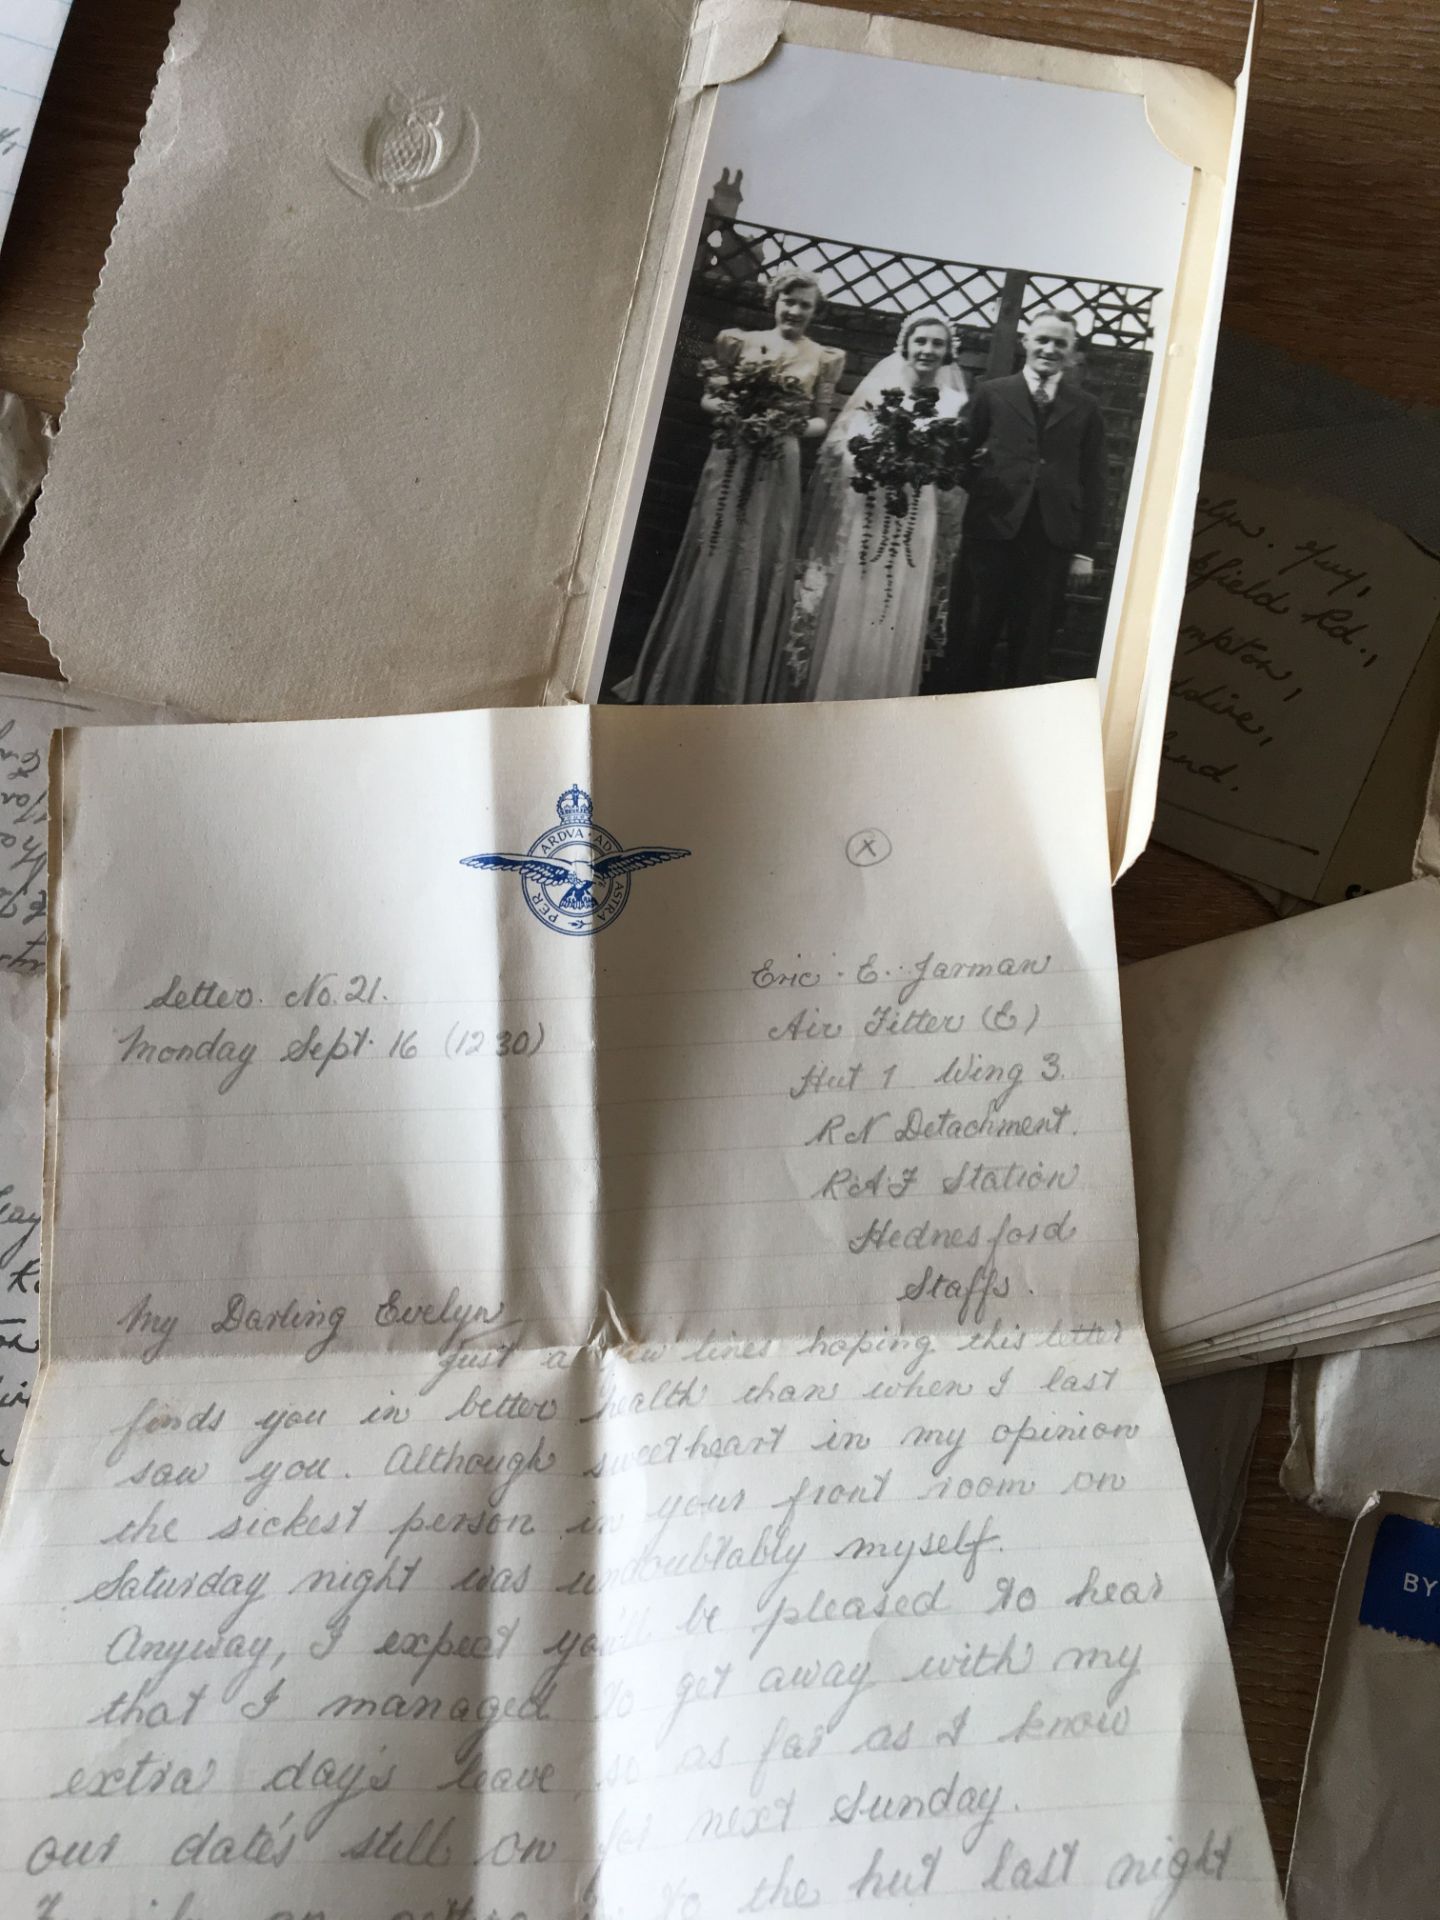 PER ARDVA AD ASTRA
X
Eric. E. Jarman
Letter. No. 21.
Air Fitter (E)
Monday Sept. 16 (12 30)
Hut 1 Wing 3.
R N Detachment.
R.A.F Station
Hednesford
Staffs.
My Darling Evelyn
Just a few lines hoping this letter
finds you in better health than when I last
saw you. Although sweetheart in my opinion
the sickest person in your front room on
Saturday night was undoubtably myself.
Anyway, I expect you'll be pleased to hear
that I managed to get away with my
extra day's leave so as far as I know
our date's still on for next Sunday.
to the hut last night
Rd.,
BY